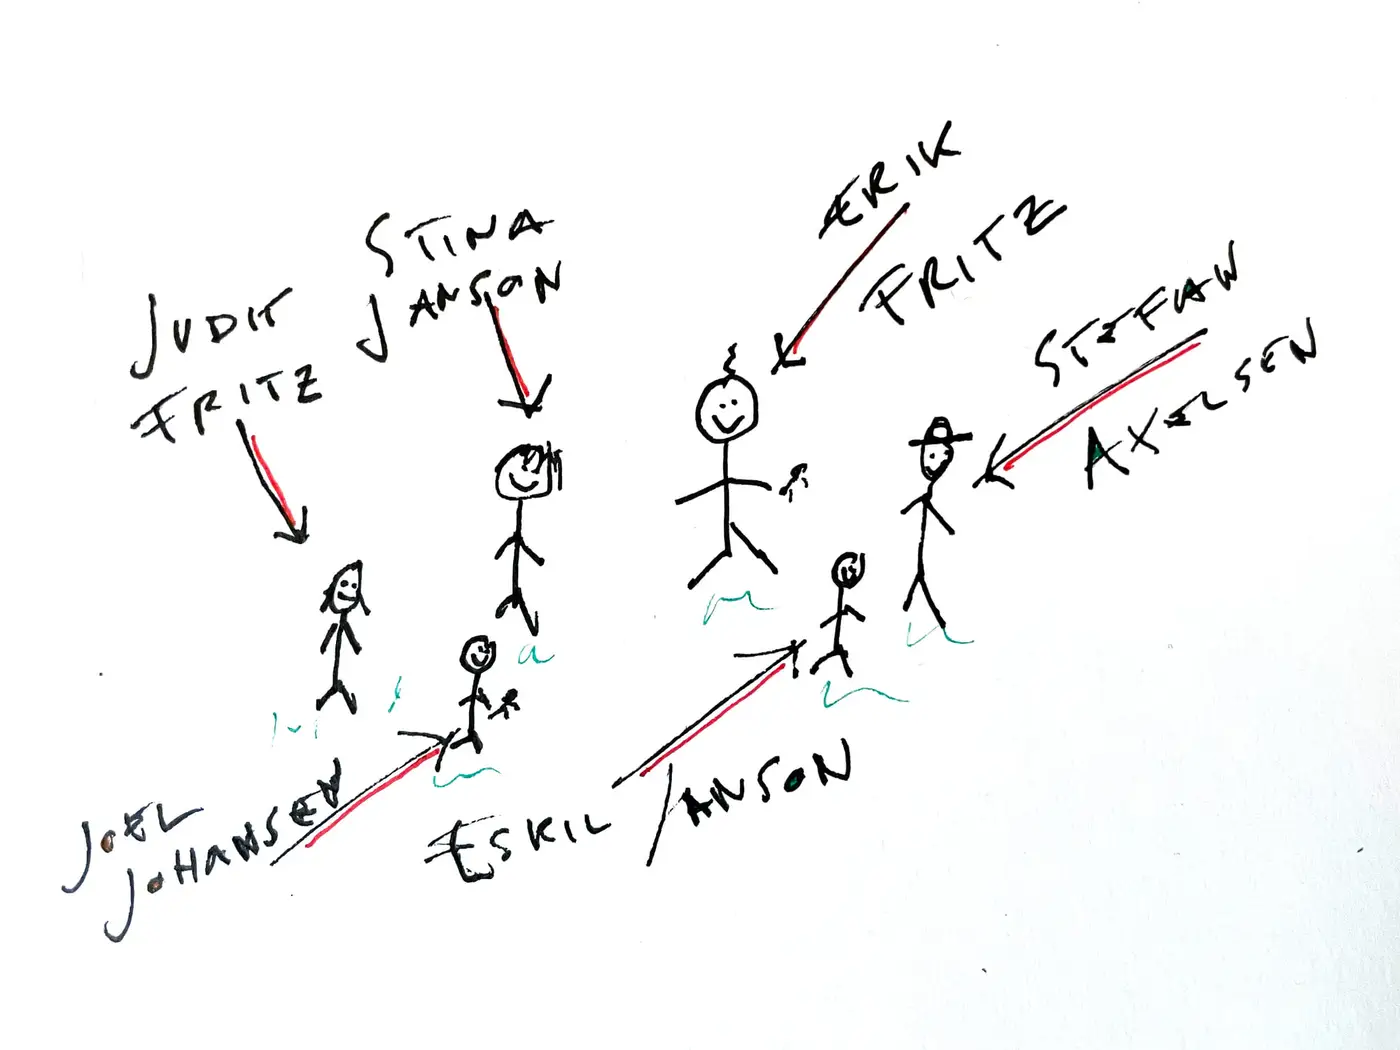 ERIK
FRITZ
STINA
JANSON
JUDIT
FRITZ
STEFAN
AXELSEN
JOEL
JOHANSEN
ESKIL JANSON